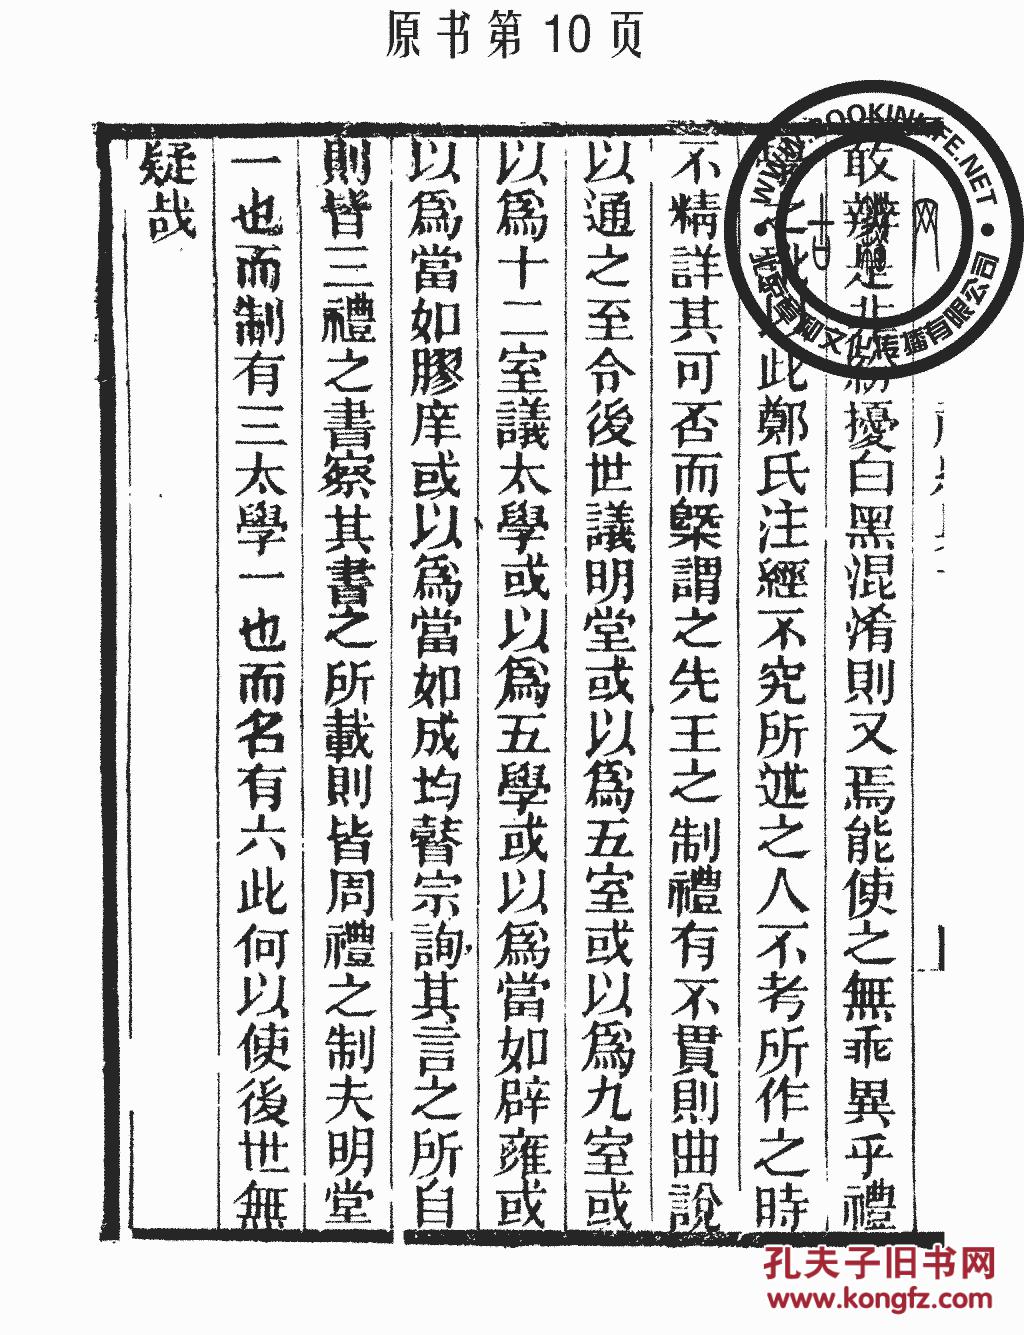 原书第10页
敢辨是非紛擾白黑混淆則又焉能使之無乖異乎禮
此鄭氏注經不究所述之人不考所作之時
不精詳其可否而槩謂之先王之制禮有不貫則曲說
以通之至令後世議明堂或以爲五室或以爲九室或
以爲十二室議太學或以爲五學或以爲當如辟雍或
以爲當如膠庠或以爲當如成均瞽宗詢其言之所自
則皆三禮之書察其書之所載則皆周禮之制夫明堂
一也而制有三太學一也而名有六此何以使後世無
疑哉
WWW.BOOKINLIFE.NET
文化传播有限公司
孔夫子旧书网
www.kongfz.com